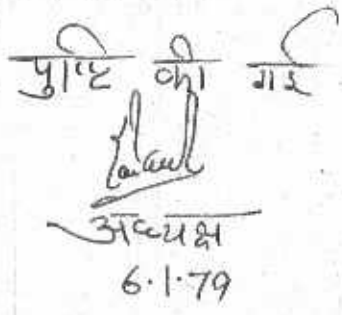 पुष्टि की गई
अध्यक्ष
6.1.79